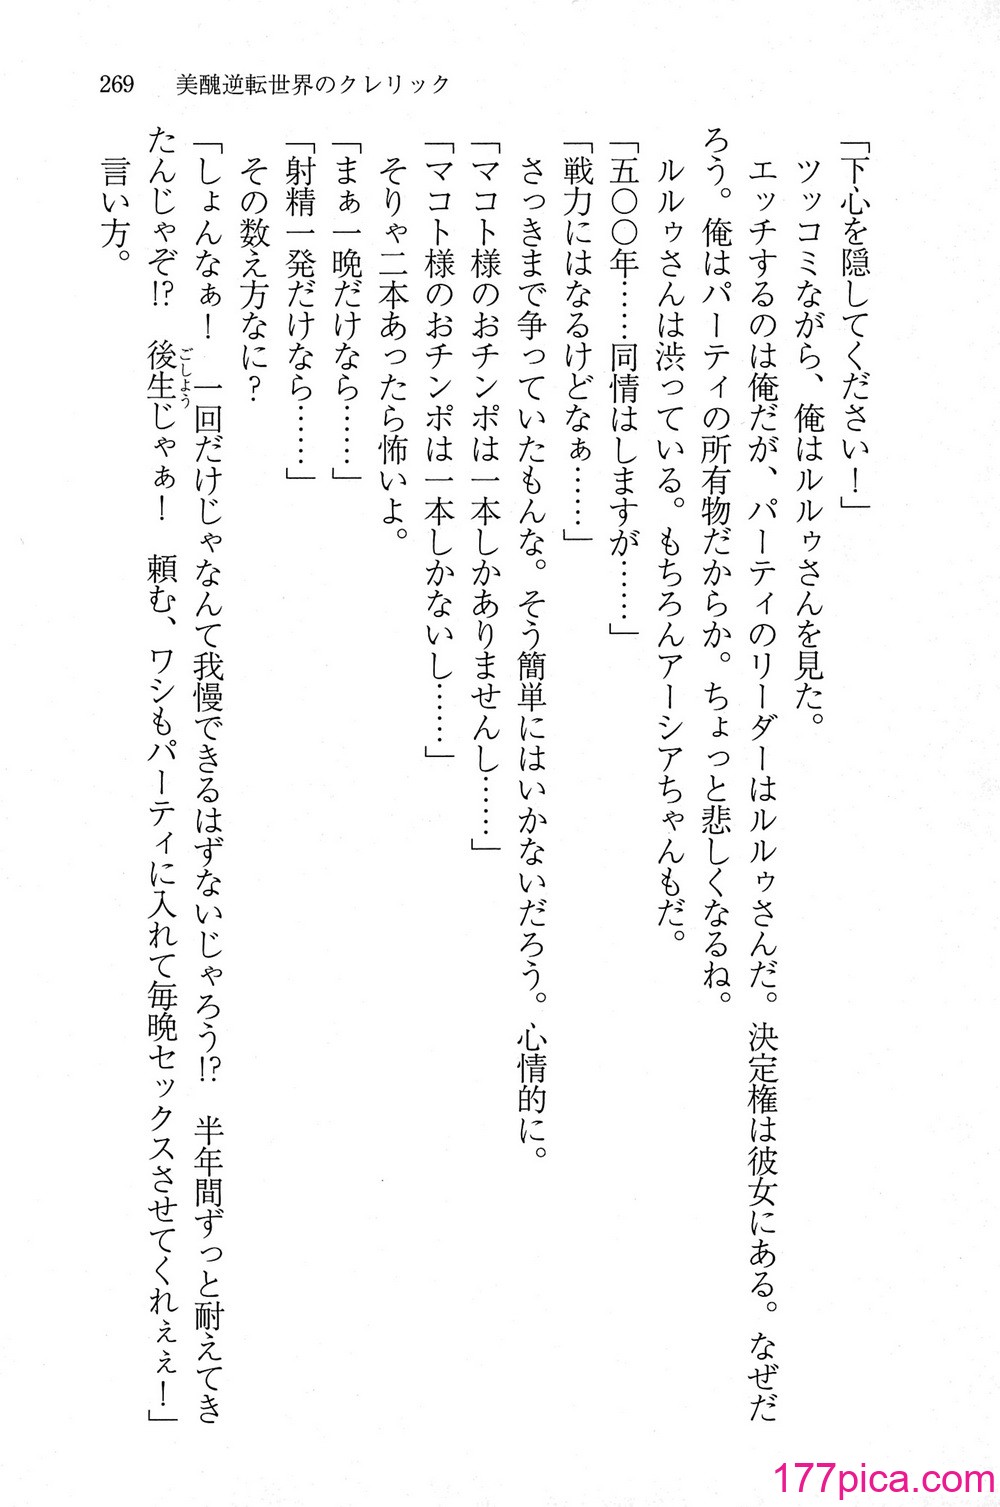 269　美醜逆転世界のクレリック
「下心を隠してください！」
　ツッコミながら、俺はルルゥさんを見た。
　エッチするのは俺だが、パーティのリーダーはルルゥさんだ。決定権は彼女にある。なぜだ
ろう。俺はパーティの所有物だからか。ちょっと悲しくなるね。
　ルルゥさんは渋っている。もちろんアーシアちゃんもだ。
「五〇〇年……同情はしますが……」
「戦力にはなるけどなぁ……」
　さっきまで争っていたもんな。そう簡単にはいかないだろう。心情的に。
「マコト様のおチンポは一本しかありませんし……」
「マコト様のおチンポは一本しかないし……」
　そりゃ二本あったら怖いよ。
「まぁ一晩だけなら……」
「射精一発だけなら……」
　その数え方なに？
「しょんなぁ！　一回だけじゃなんて我慢できるはずないじゃろう!?　半年間ずっと耐えてき
たんじゃぞ!?　後生じゃぁ！　頼む、ワシもパーティに入れて毎晩セックスさせてくれぇぇ！」
ごしょう
　言い方。
177pica.com